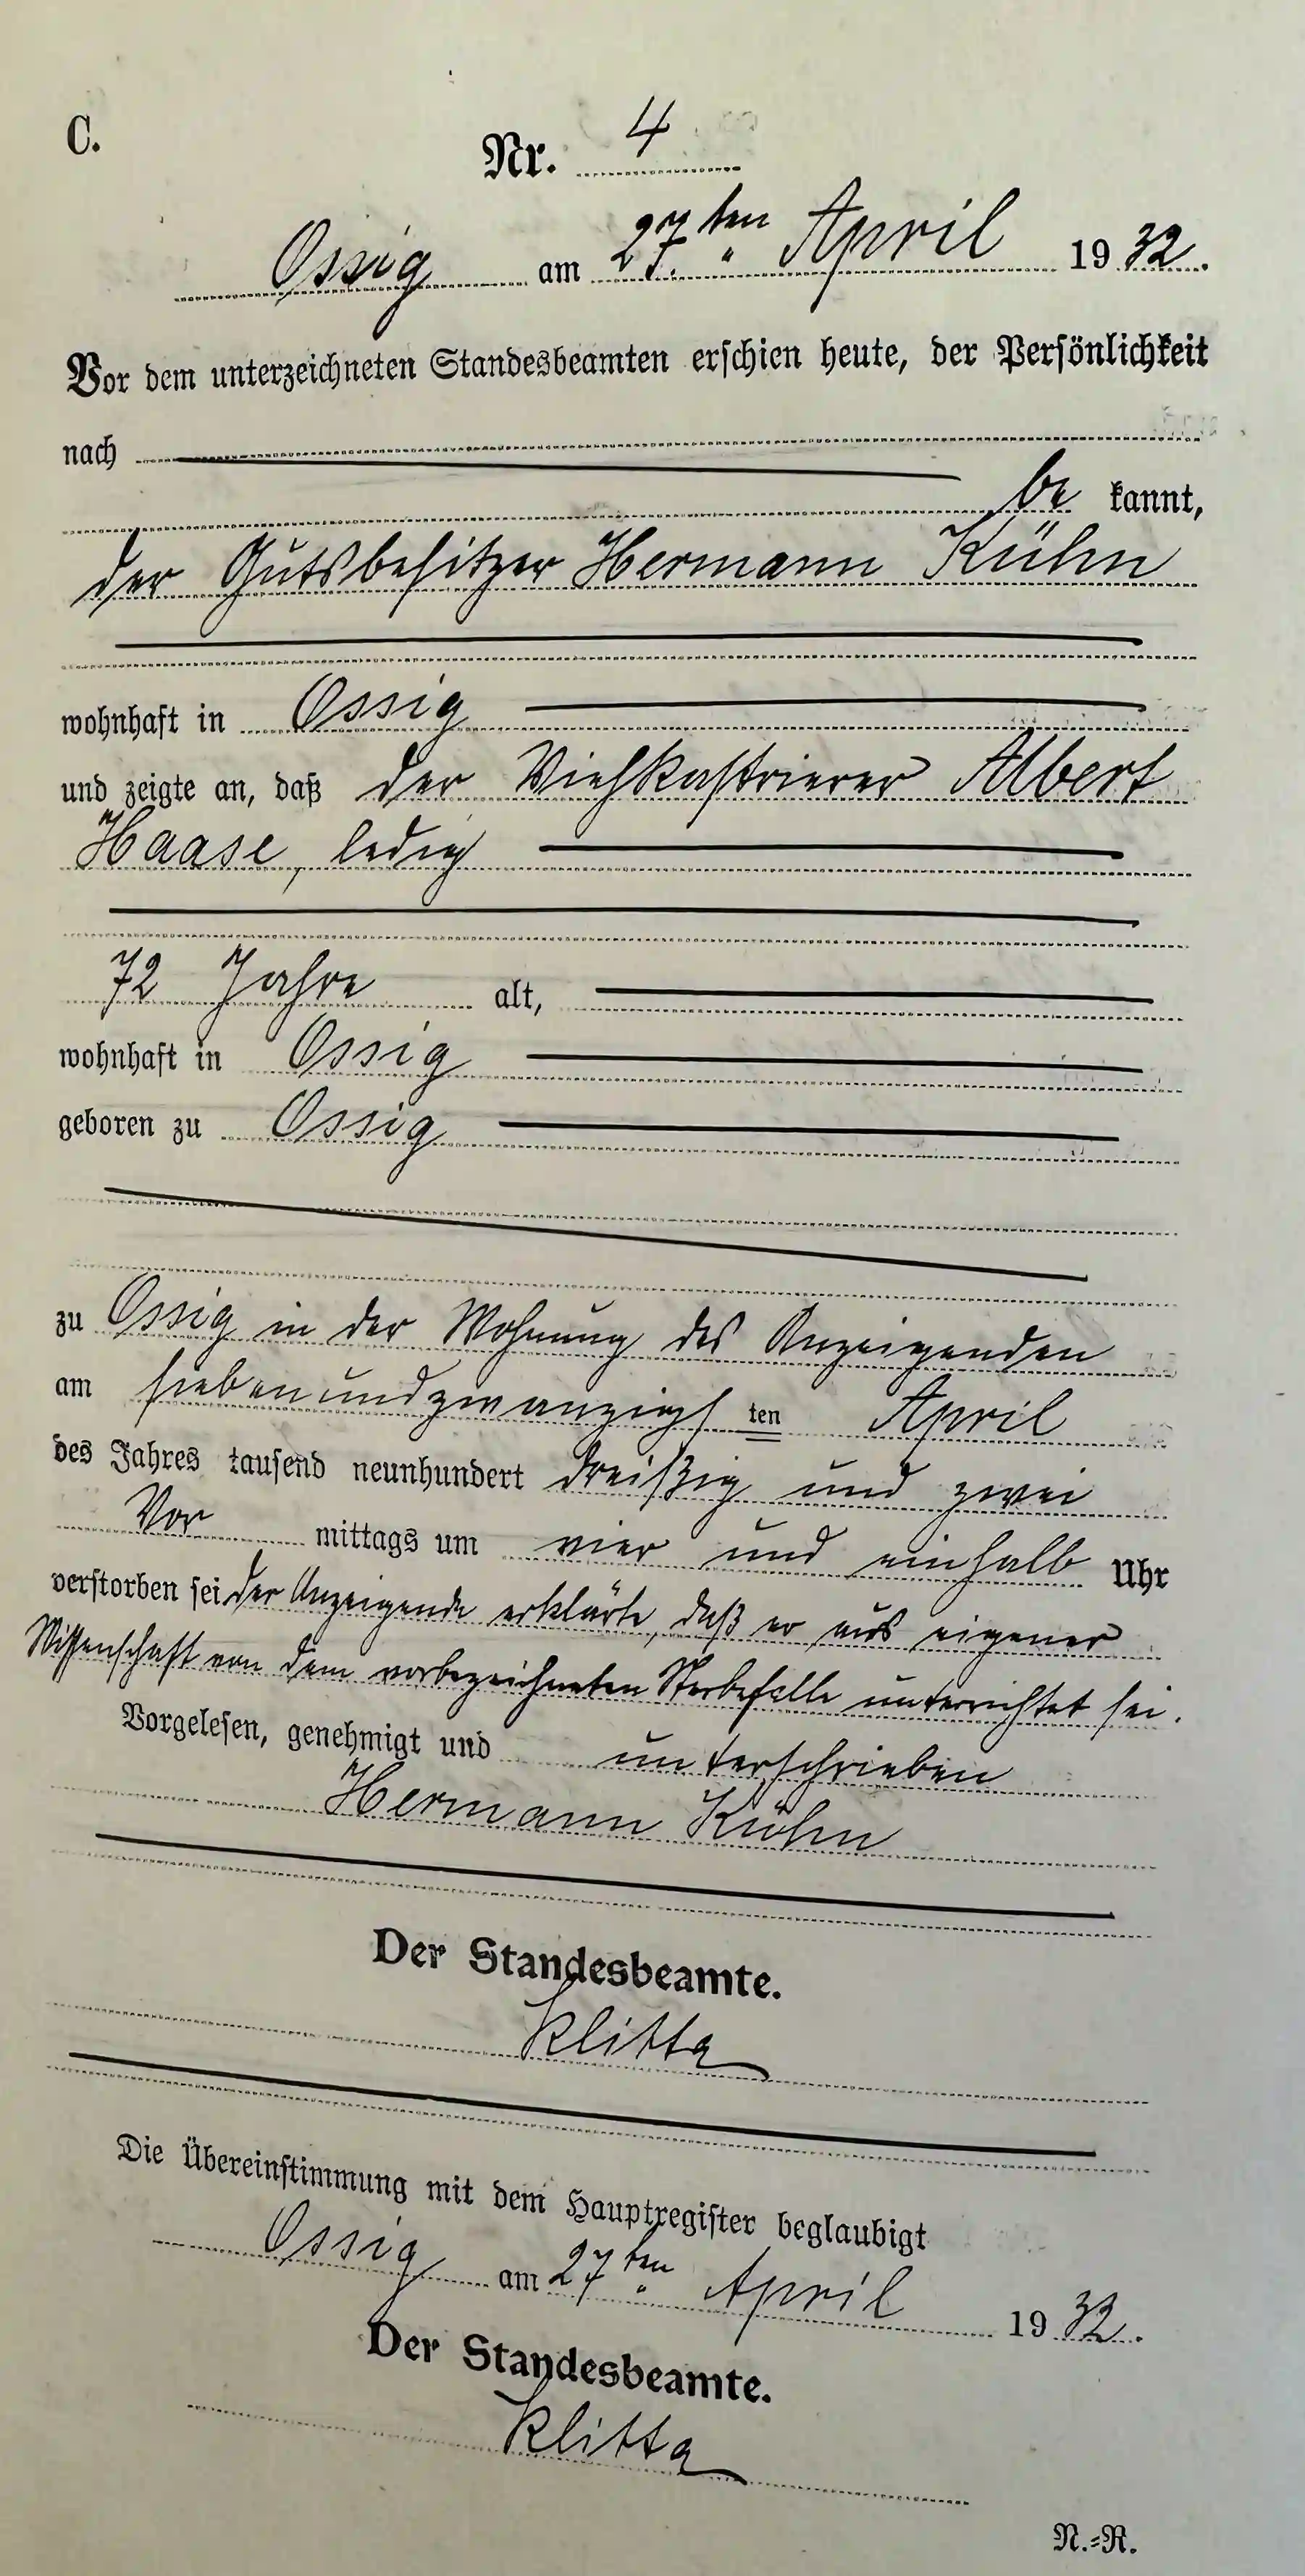 C.
Nr. 4
Ossig am 27. ten April 1932.
Vor dem unterzeichneten Standesbeamten erschien heute, der Persönlichkeit
nach
be kannt,
der Gutsbesitzer Hermann Kühn
wohnhaft in Ossig
und zeigte an, daß der Viehkastrierer Albert
Haase, ledig
72 Jahre alt,
wohnhaft in Ossig
geboren zu Ossig
zu Ossig in der Wohnung des Anzeigenden
am siebenundzwanzigsten April
des Jahres tausend neunhundert dreißig und zwei
Vor mittags um vier und einhalb Uhr
verstorben sei. Der Anzeigende erklärte, daß er aus eigener
Wissenschaft von dem vorbezeichneten Sterbefalle unterrichtet sei.
Vorgelesen, genehmigt und unterschrieben
Hermann Kühn
Der Standesbeamte.
Klitta
Die Übereinstimmung mit dem Hauptregister beglaubigt
Ossig am 27 ten April 1932.
Der Standesbeamte.
Klitta
N.=R.